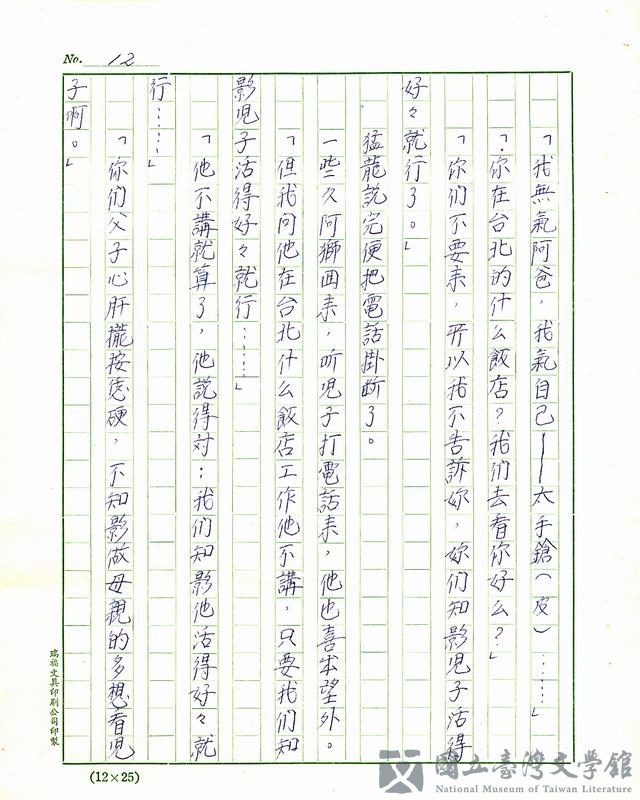 No. 12
「我無氣阿爸，我氣自己——太手鎗（皮）……」
「你在台北的什么飯店？我们去看你好么？」
「你们不要来，所以我不告訴妳，妳们知影児子活得
好々就行了。」
猛龍说完便把電話掛断了。
一些久阿獅回来，听児子打電話来，他也喜出望外。
「但我问他在台北什么飯店工作他不講，只要我们知
影児子活得好々就行……」
「他不講就算了，他説得对：我们知影他活得好々就
行……」
「你们父子心肝攏按恁硬，不知影做母親的多想看児
子啊。」
(12×25)
瑞福文具印刷公司印製
國立臺灣文學館
National Museum of Taiwan Literature